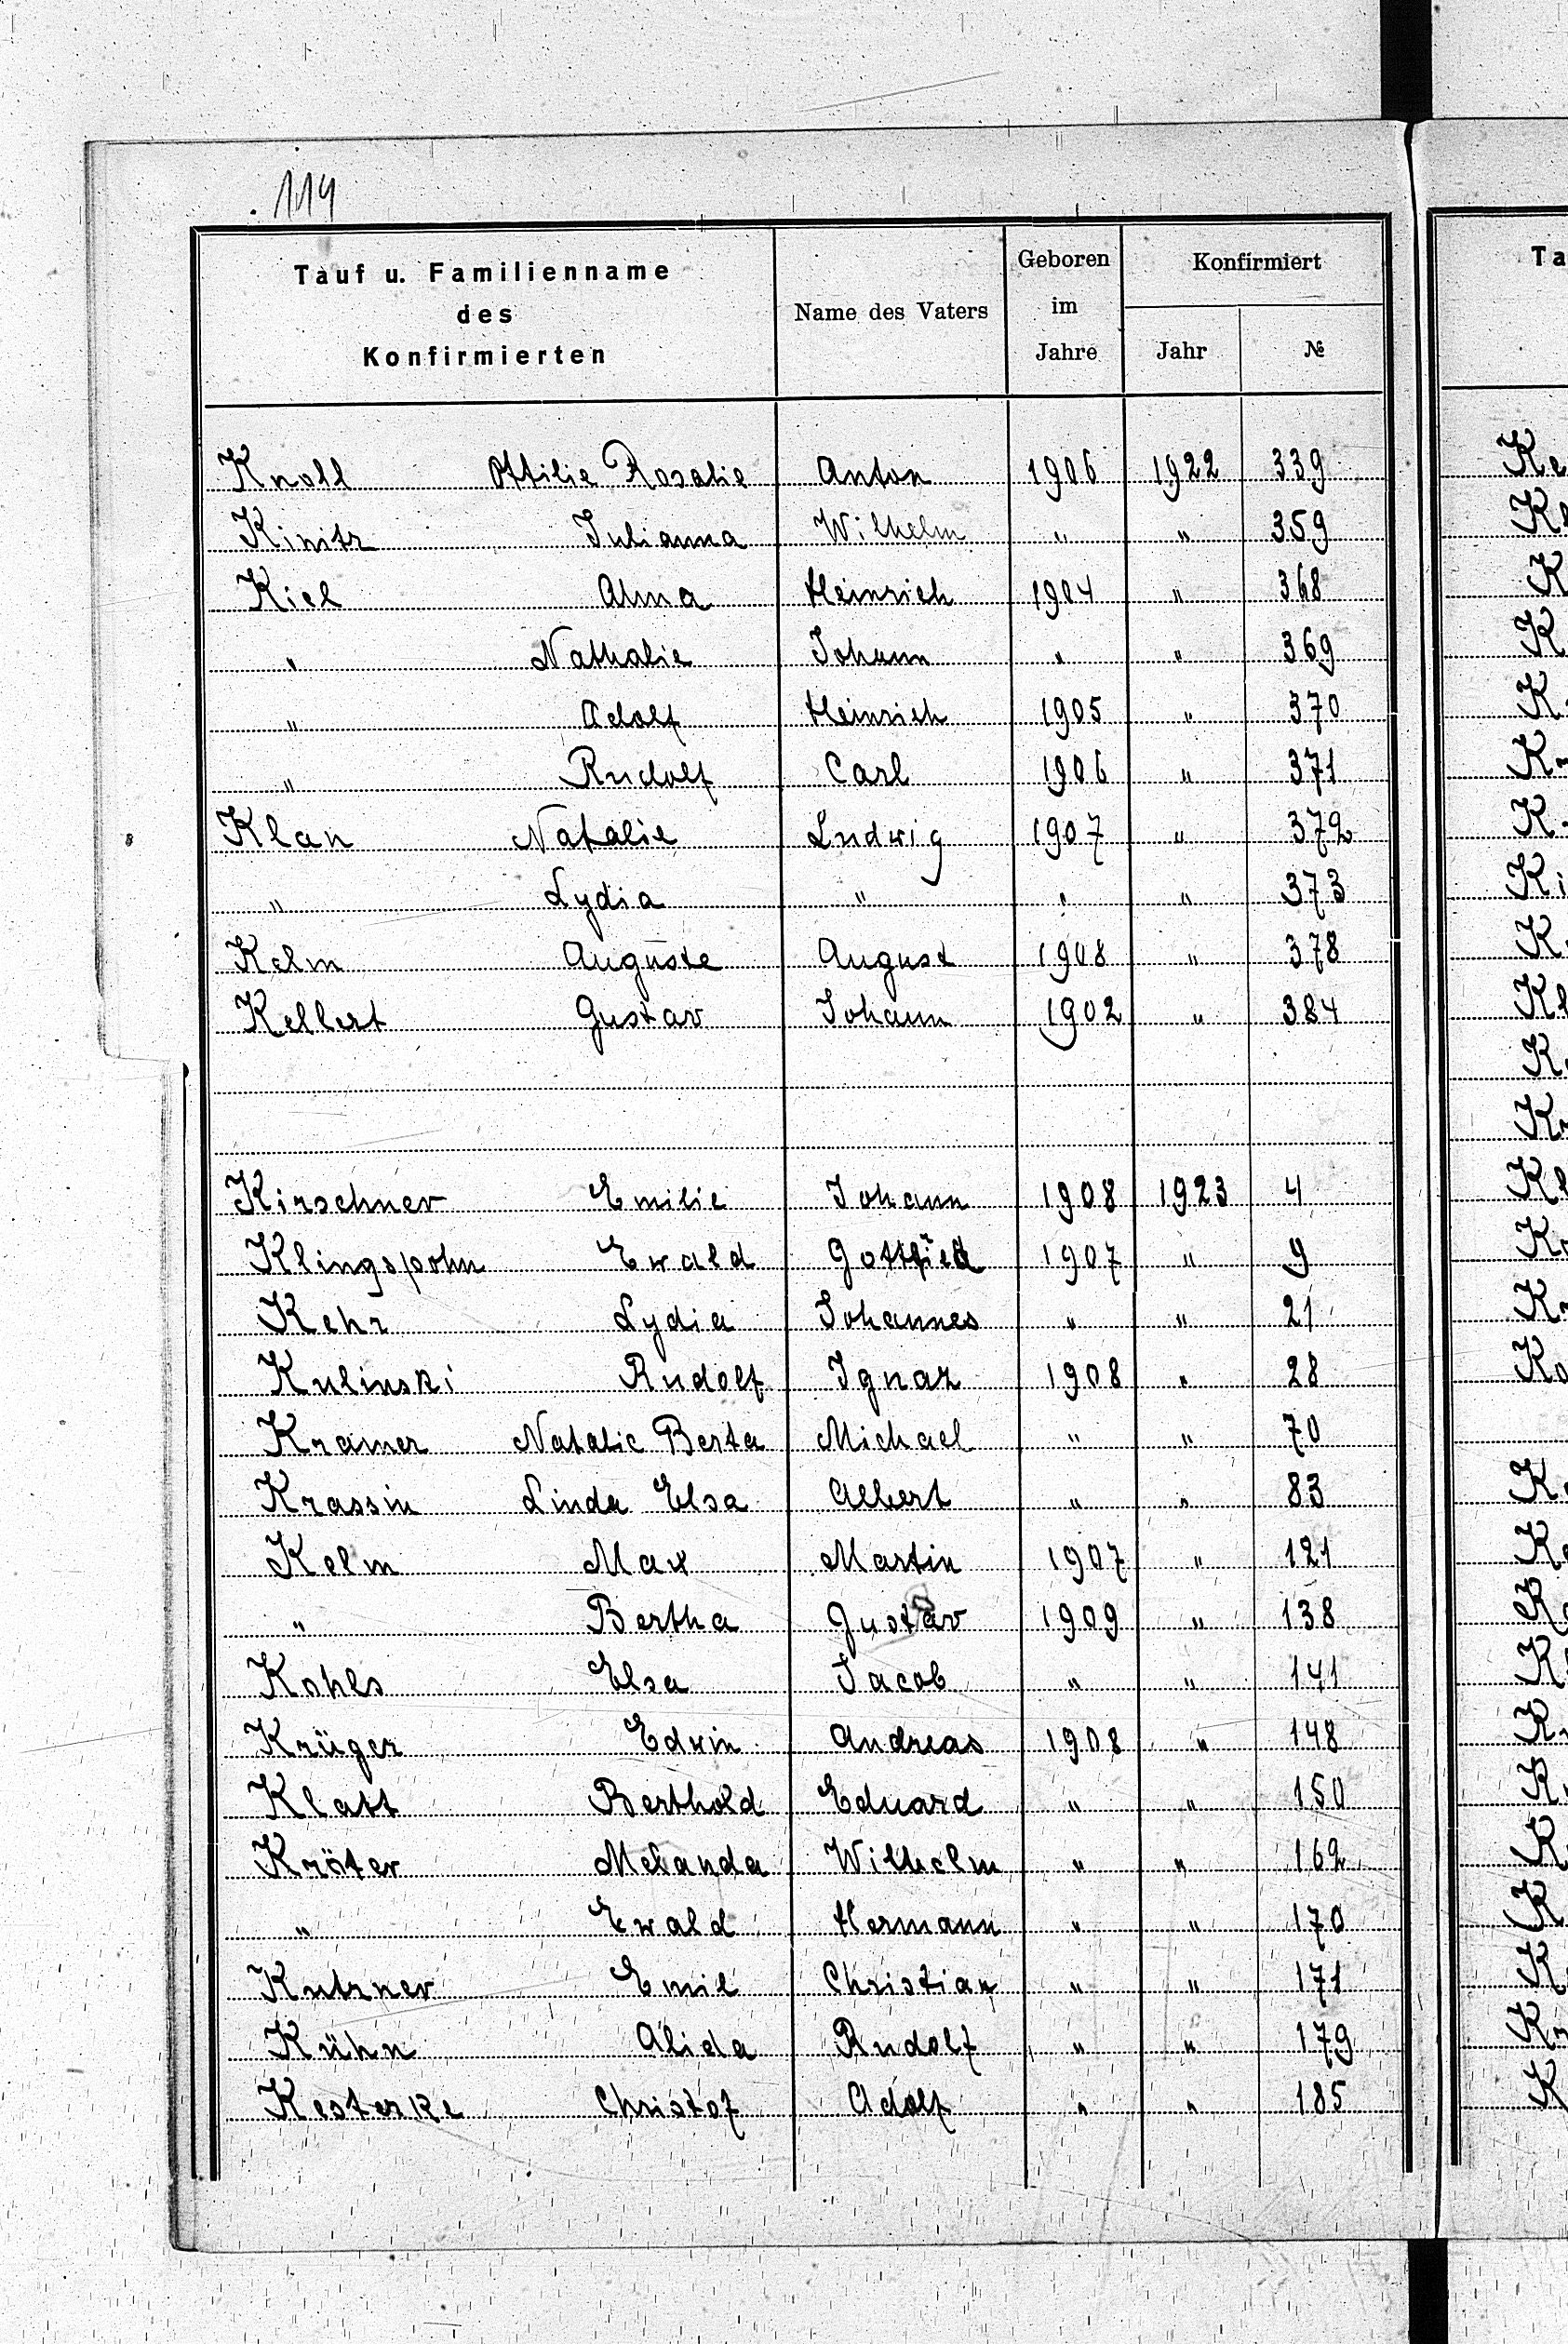 114
Tauf u. Familienname des Konfirmierten | Name des Vaters | Geboren im Jahre | Konfirmiert Jahr | №
Knoll Ottilie Rosalie Anton 1906 1922 339
Kinitz Julianna Wilhelm " " 359
Kiel Alma Heinrich 1904 " 368
" Nathalie Johann " " 369
" Adolf Heinrich 1905 " 370
" Rudolf Carl 1906 " 371
Klan Natalie Ludwig 1907 " 372
" Lydia " " " 373
Kelm Auguste August 1908 " 378
Kellert Gustav Johann 1902 " 384
Kirschner Emilie Johann 1908 1923 4
Klingspohn Ewald Gottfied 1907 " 9
Kehr Lydia Johannes " " 21
Kulinski Rudolf Ignaz 1908 " 28
Kramer Natalie Berta Michael " " 70
Krassin Linda Elsa Albert " " 83
Kelm Max Martin 1907 " 121
" Bertha Gustav 1909 " 138
Kohls Elsa Jacob " " 141
Krüger Edwin Andreas 1908 " 148
Klatt Berthold Eduard " " 150
Kröter Melanda Wilhelm " " 162
" Ewald Hermann " " 170
Kutzner Emil Christian " " 171
Kühn Alida Rudolf " " 179
Kesterke Christof Adolf " " 185